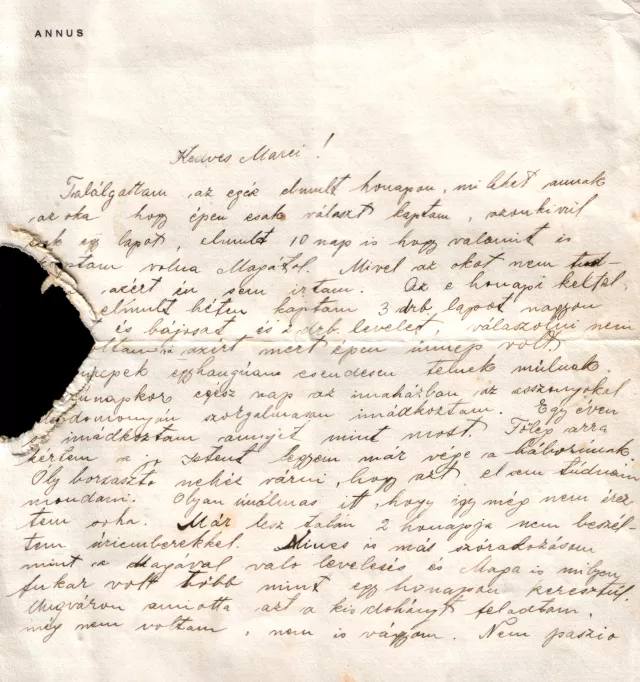 ANNUS
Kedves Marci!
Találgattam az egész elmult honapon, mi lehet annak
az oka hogy épen csak választ kaptam, azonkivül
csak egy lapot, elmult 10 nap is hogy valamit is
kaptam volna Magától. Mivel az okot nem tud-
azért én sem irtam. Az e honapi kettel,
elmult héten kaptam 3 drb lapot nagyon
és bájosat és 2 drb. levelet, válaszolni nem
azért mert épen ünnep volt.
egyhanguan csendesen telnek múlnak.
egész nap az imaházban az asszonyokkal
szorgalmasan imádkoztam. Egy éven
imádkoztam annyit mint most. Főleg arra
kértem a jó Istent legyen már vége a háborúnak.
Oly borzasztó nehéz várni, hogy azt el sem tudnám
mondani. Olyan unalmas itt, hogy igy még nem érez-
tem soha. Már lesz talán 2 honapja nem beszél-
tem úriemberekkel. Nincs is más szórakozásom
mint a Magával valo levelezés és Maga is milyen
fukar volt több mint egy honapon keresztül.
Ungváron amiotta azt a kis dohányt feladtam,
még nem voltam, nem is vágyom. Nem passio